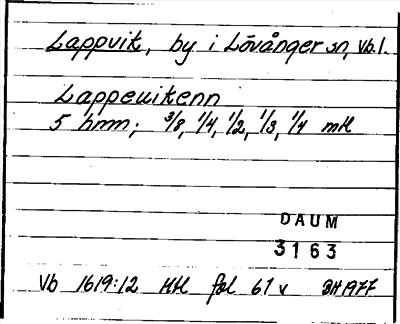 Lappvik, by i Lövånger sn, Vb.l.
Lappeuikenn
5 hmn; 3/8, 1/4, 1/2, 1/3, 1/4 mtl
DAUM
3163
Vb 1619:12 Mtl fol 61 v BH 1977